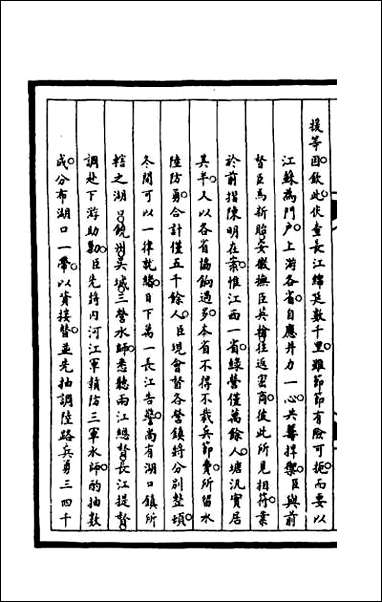 援等因欽此伏查長江綿延數千里雖節節有險可扼而要以
江蘇為門戶上游各省自應幷力一心共籌捍禦臣與前
督臣馬新貽安徽撫臣英翰往返密商彼此所見相符業
於前摺陳明在案惟江西一省綠營僅萬餘人塘汛實居
其半又以各省協餉過多本省不得不裁兵節費所留水
陸防勇合計僅五千餘人臣現會督各營鎮將分別整頓
冬間可以一律就緒目下萬一長江告警尚有湖口鎮所
轄之湖口饒州吳城三營水師悉聽兩江總督長江提督
調赴下游助勦臣先將內河江軍精防三軍水師酌抽數
成分布湖口一帶以資接替並先抽調陸路兵勇三四千